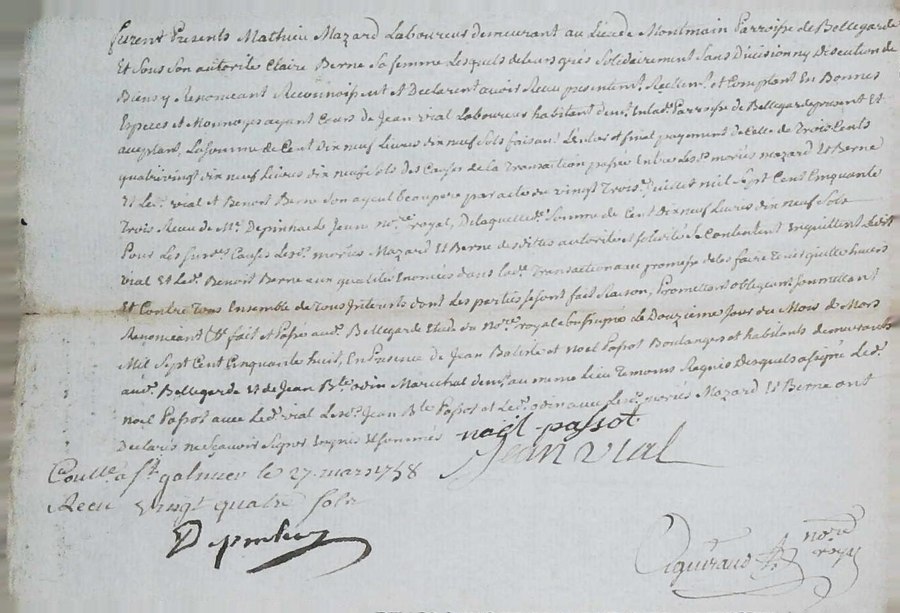 furent Presents Mathieu Mazard Laboureur demeurant au Lieu de Montmain Parroisse de Bellegarde
Et Sous Son autorité Claire Berne Sa femme Lesquels de leurs grés Solidairement Sans Division ny Discution de
Biens y Renonceant Reconnoissent et Declarent avoir Receu presentem. Reelem. et Comptant En Bonnes
Especes et Monnoyes ayant Cours de Jean vial Laboureur habitant Parroisse de Bellegarde present Et
acceptant, La Somme de Cent dix neuf Livres dix neuf Sols faisant Lentier et final payement de Celle de Trois Cents
quatre vingt dix neuf Livres dix neuf Sols des Causes de la Transaction passée Entre Les mariés Mazard Et Berne
Et Led. vial et Benoit Berne Son ayeul Beaupere par acte du vingt Trois Juillet mil Sept Cent Cinquante
Trois Receu de Me Depinhac Le Jeune no.re royal, De laquelle d. Somme de Cent dix neuf Livres dix neuf Sols
Pour Les Causes Lesd. mariés Mazard Et Berne desdittes autorité et solidité Se Contentent En quittent Ledit
vial Et Led. Benoit Berne aux qualités Enoncées dans lad. Transaction avec promesse de les faire Tenir quitte Envers
Et Contre Tous Ensemble de Tous Interests dont Les parties Se Sont fait Raison, Promettant obligeant Soumettant
Renonceant &c. fait et Passé aud. Bellegarde Etude du no.re royal Soussigné Le Douzieme Jour du Mois de Mars
Mil Sept Cent Cinquante huit En Presence de Jean et Noel Passot Boulangers et habitants demeurants
aud. Bellegarde Et de Jean B.te odin Marechal dem. au meme Lieu Temoins Requis Desquels a Signé Led.
Noel Passot avec Led. vial Jean B.te Passot et Led. odin avec Les mariés Mazard Et Berne ont
Declaré ne Scavoir Signer Enquis Et Sommés
noël passot
Jean vial
Coulle a St. galmier le 27. mars 1758
Receu vingt quatre Sols
Depinhac
no.re
royal